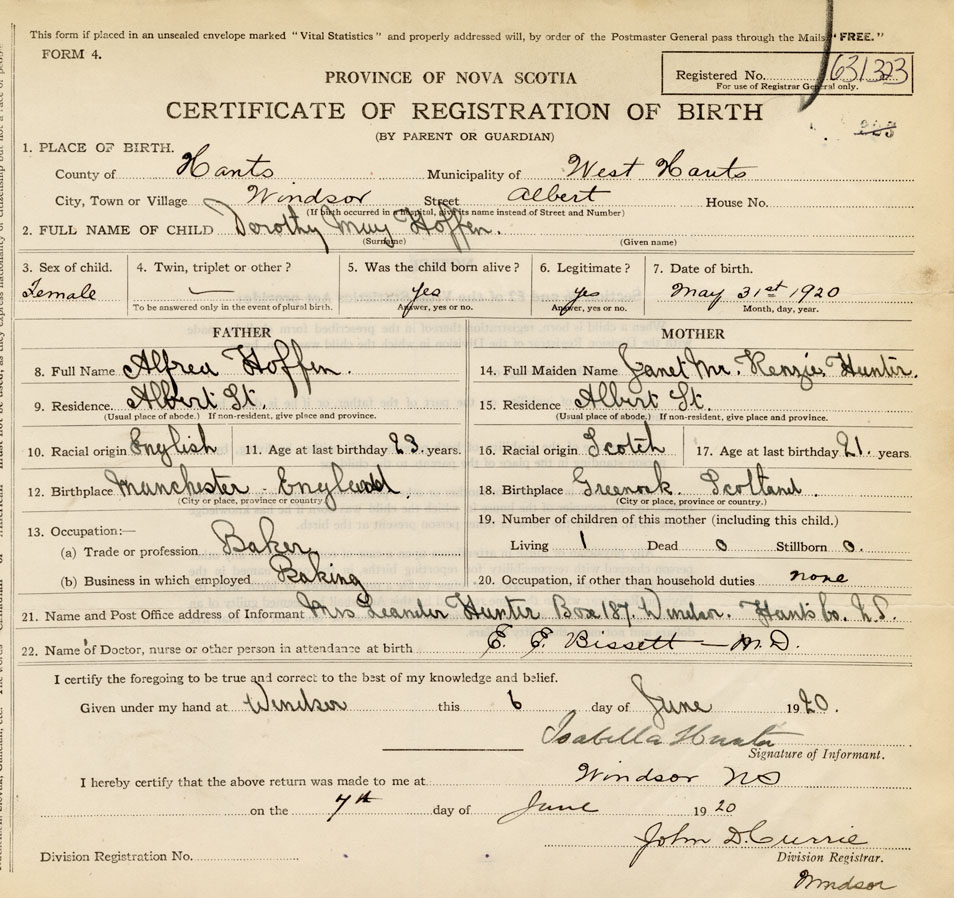 This form if placed in an unsealed envelope marked "Vital Statistics" and properly addressed will, by order of the Postmaster General pass through the Mails "FREE."
FORM 4.
PROVINCE OF NOVA SCOTIA
Registered No. 631323
For use of Registrar General only.
CERTIFICATE OF REGISTRATION OF BIRTH
(BY PARENT OR GUARDIAN)
1. PLACE OF BIRTH.
County of Hants Municipality of West Hants
City, Town or Village Windsor Street Albert House No.
(If birth occurred in a hospital, give its name instead of Street and Number)
2. FULL NAME OF CHILD Dorothy May Hoffen.
(Surname) (Given name)
3. Sex of child. 4. Twin, triplet or other? 5. Was the child born alive? 6. Legitimate? 7. Date of birth.
Female — yes yes May 31st 1920
To be answered only in the event of plural birth. Answer, yes or no. Answer, yes or no. Month, day, year.
FATHER MOTHER
8. Full Name Alfred Hoffen. 14. Full Maiden Name Janet Mc. Kenzie Hunter.
9. Residence. Albert St. 15. Residence Albert St.
(Usual place of abode.) If non-resident, give place and province. (Usual place of abode.) If non-resident, give place and province.
10. Racial origin English 11. Age at last birthday 23. years. 16. Racial origin Scotch 17. Age at last birthday 21. years
12. Birthplace Manchester - England. 18. Birthplace Greenock. Scotland.
(City or place, province or country) (City or place, province or country.)
13. Occupation:— 19. Number of children of this mother (including this child.)
(a) Trade or profession Baker Living 1 Dead 0 Stillborn 0.
(b) Business in which employed Baking 20. Occupation, if other than household duties none
21. Name and Post Office address of Informant Mrs Leander Hunter Box 187. Windsor. Hants Co. N.S.
22. Name of Doctor, nurse or other person in attendance at birth E. E. Bissett — M.D.
I certify the foregoing to be true and correct to the best of my knowledge and belief.
Given under my hand at Windsor this 6 day of June 1920.
Isabella Hunter
Signature of Informant.
I hereby certify that the above return was made to me at Windsor NS
on the 7th day of June 1920
John D. Currie
Division Registration No. Division Registrar.
Windsor